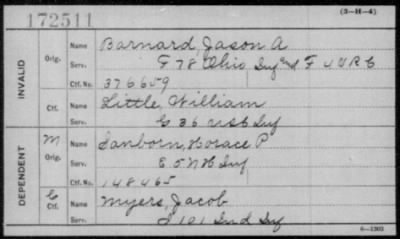 172511
(3-H-4)
INVALID
Orig. Name Barnard, Jason A
Serv. F 78 Ohio Inf and F 4 V R C
Ctf. No. 376659
Ctf. Name Little, William
Serv. G 36 Inf
DEPENDENT
M Orig. Name Sanborn, Horace P
Serv. E 5 N H Inf
Ctf. No. 148465
C Ctf. Name Myers, Jacob
Serv. I 101 Ind Inf
6-1303